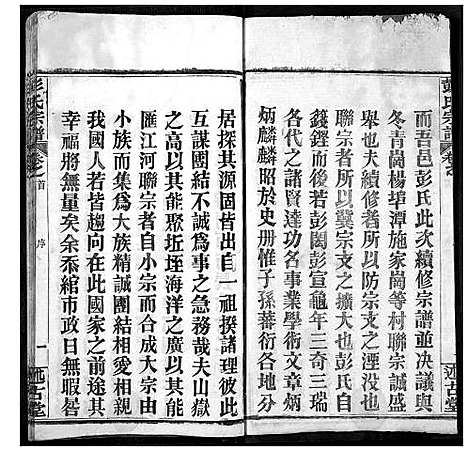 而吾邑彭氏此次續修宗譜並决議與
冬青崗楊埠潭施家崗等村聯宗誠盛
舉也夫續修者所以防宗支之湮没也
聯宗者所以冀宗支之擴大也彭氏自
籛鏗而後若彭閎彭宣龜年三奇三瑞
各代之諸賢達非成功名事業學術文章
炳麟麟昭於史册惟子孫蕃衍各地分
居探其源固皆出自一祖揆諸理彼此
互謀團結不誠爲事之急務哉夫山嶽
之高以其能聚坵垤海洋之廣以其能
匯江河聯宗者自小宗而合成大宗由
小族而集爲大族精誠團結相親相愛
我國人若皆趨向在此國家之前途其
幸福將無量矣余忝綰市政日無暇晷
彭氏宗譜 卷之首 序 一 述古堂
彭氏宗譜 卷之首 述古堂